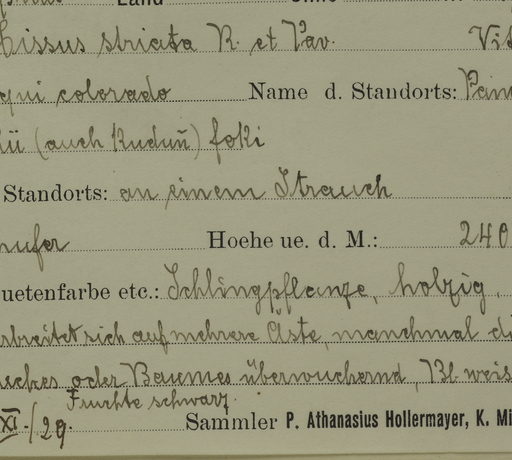 Land
Cissus striata R. et Pav. Vit
qui colorado Name d. Standorts: Pan
lü (auch Kuduñ) foki
Standorts: an einem Strauch
nufer Hoehe ue. d. M.: 240
uetenfarbe etc.: Schlingpflanze, holzig,
rbreitet sich auf mehrere Äste, manchmal di
uches oder Baumes überwuchernd, Bl. weis
Fruchte schwarz.
XI./29. Sammler P. Athanasius Hollermayer, K. Mi